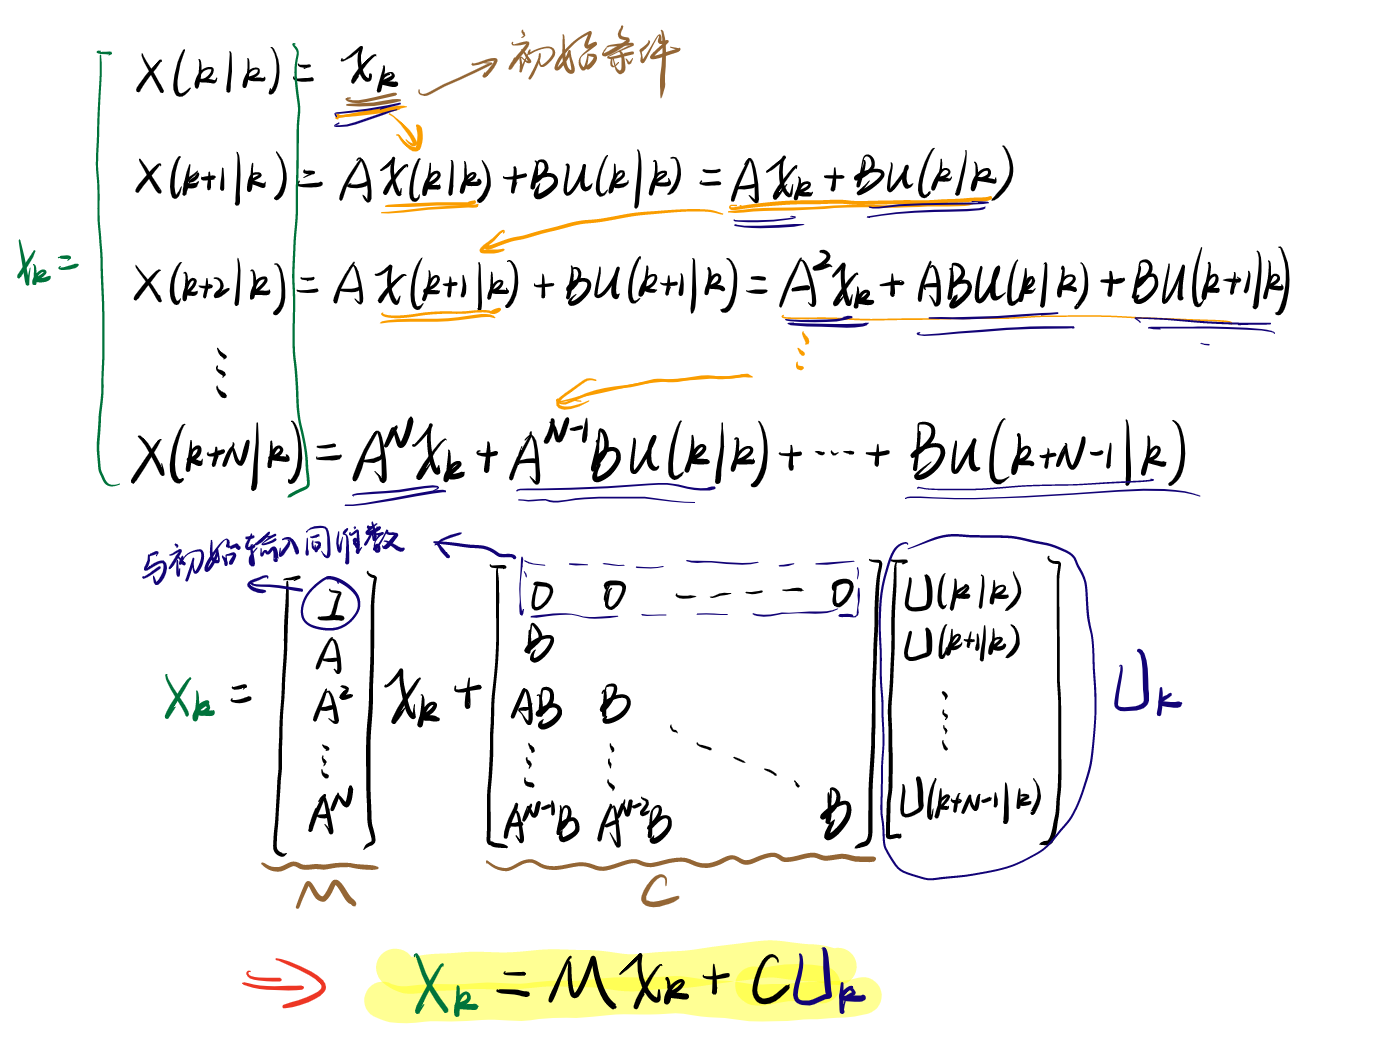 X(k|k) = x_k → 初始条件
X(k+1|k) = A x(k|k) + B u(k|k) = A x_k + B u(k|k)
x_k =
X(k+2|k) = A x(k+1|k) + B u(k+1|k) = A² x_k + A B u(k|k) + B u(k+1|k)
⋮ ⋮
X(k+N|k) = A^N x_k + A^{N-1} B u(k|k) + ⋯ + B u(k+N-1|k)
与初始输入同维数
X_k = [I A A² ⋮ A^N] x_k + [0 0 ---- 0
B
AB B
⋮ ⋮ ⋱
A^{N-1}B A^{N-2}B B] [U(k|k) U(k+1|k) ⋮ U(k+N-1|k)] U_k
M C
⇒ X_k = M x_k + C U_k